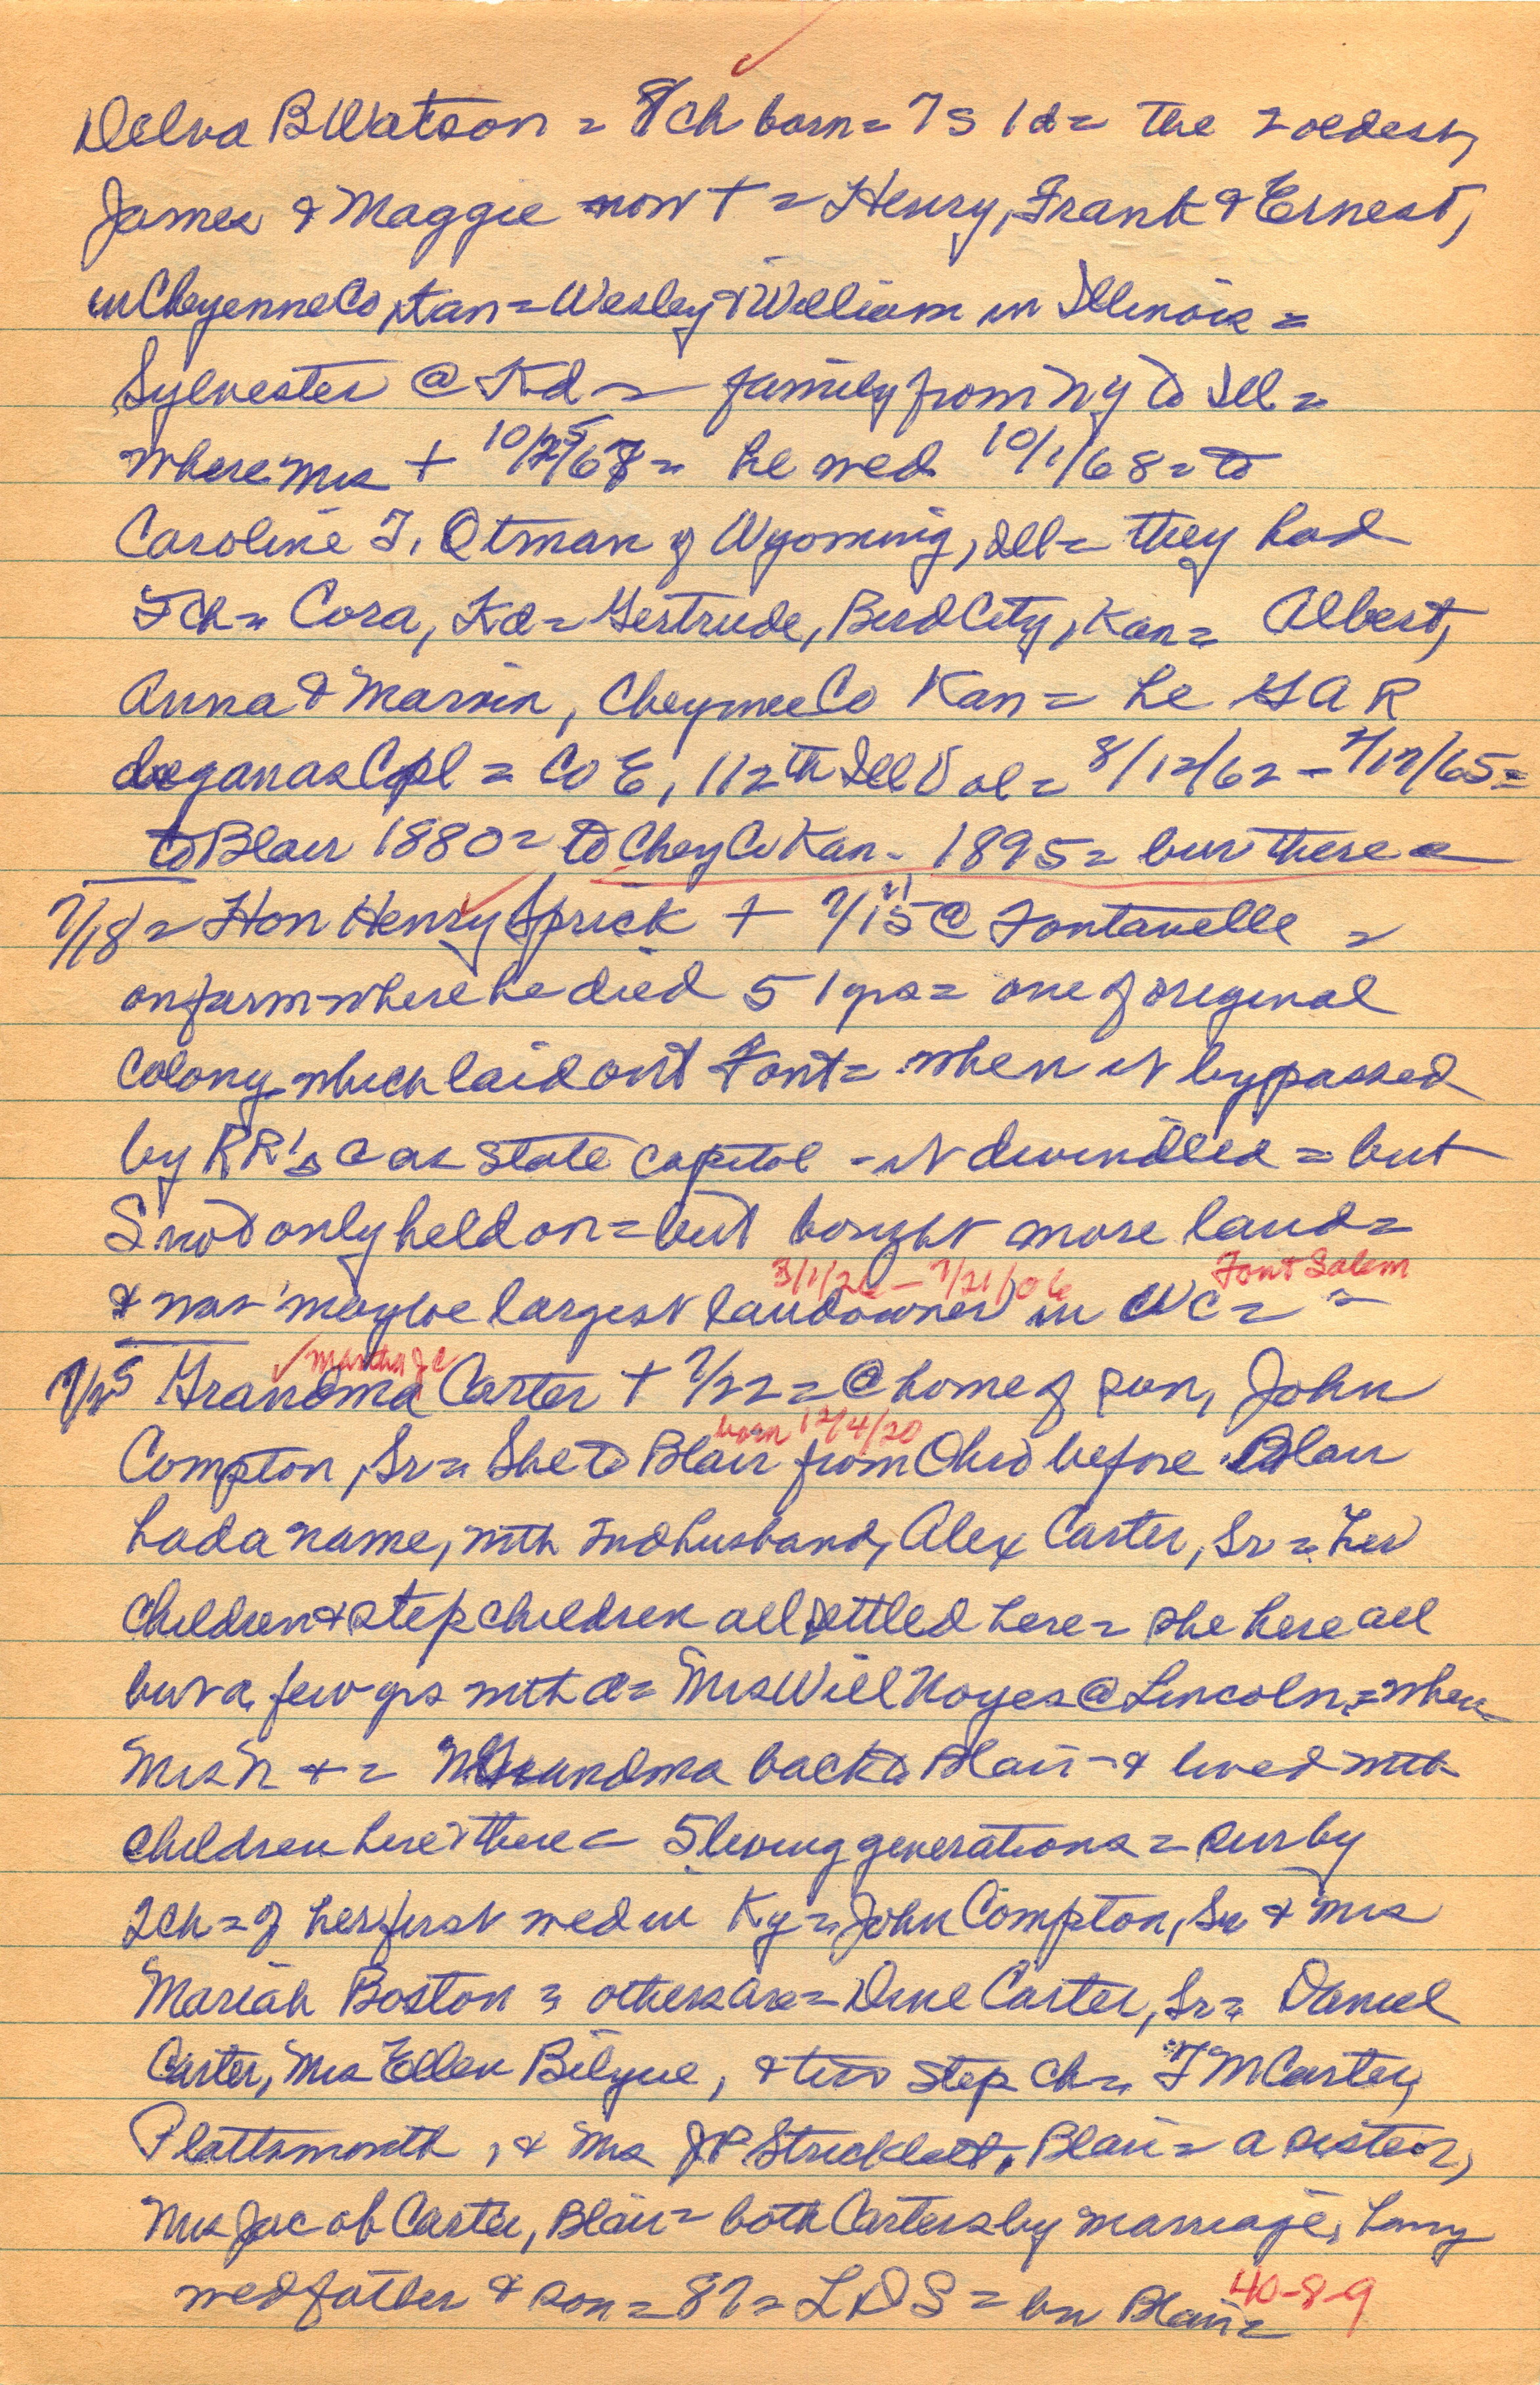 Delva B Watson = 8 ch born = 7 s 1 d = the 2 oldest,
James & Maggie now + = Henry, Frank & Ernest,
in Cheyenne Co, Kan = Wesley & William in Illinois =
Sylvester @ Kd = family from NY to Ill =
where Mrs + 10/25/67 = he wed 10/1/68 = to
Caroline F. Otman of Wyoming, Ill = they had
5 ch = Cora, Kd = Gertrude, Bird City, Kan = Albert,
Anna & Marvin, Cheyenne Co Kan = he GAR
began as Cpl = Co E, 112th Ill Vol = 8/12/62 - 7/12/65 =
to Blair 1880 = to Chey Co Kan - 1895 = bur there =
7/18 = Hon Henry Sprick + 7/15 @ Fontanelle =
21
on farm where he died 51 yrs = one of original
colony which laid out Font = when it bypassed
by RR's & as state capitol - it dwindled = but
S not only held on = but bought more land =
3/1/26 - 7/21/06 Font Salem
& was maybe largest landowner in WC =
Martha J C
7/25 Grandma Carter + 7/22 = @ home of son, John
born 12/4/20
Compton, Sr = She to Blair from Ohio before Blair
had a name, with 2nd husband, Alex Carter, Sr = her
children & step children all settled here = she here all
but a few yrs with d = Mrs Will Noyes @ Lincoln = when
Mrs N + = Grandma back to Blair - & lived with
children here & there = 5 living generations = sur by
2 ch = of her first wed in Ky = John Compton, Sr & Mrs
Mariah Boston = others are = Dine Carter, Sr = Daniel
Carter, Mrs Ellen Bilyue, & two step ch = F M Carter,
Plattsmouth, & Mrs J P Stricklett, Blair = a sister,
Mrs Jacob Carter, Blair = both Carters by marriage,
wed father & son = 87 = LDS = bur Blair =
40-8-9